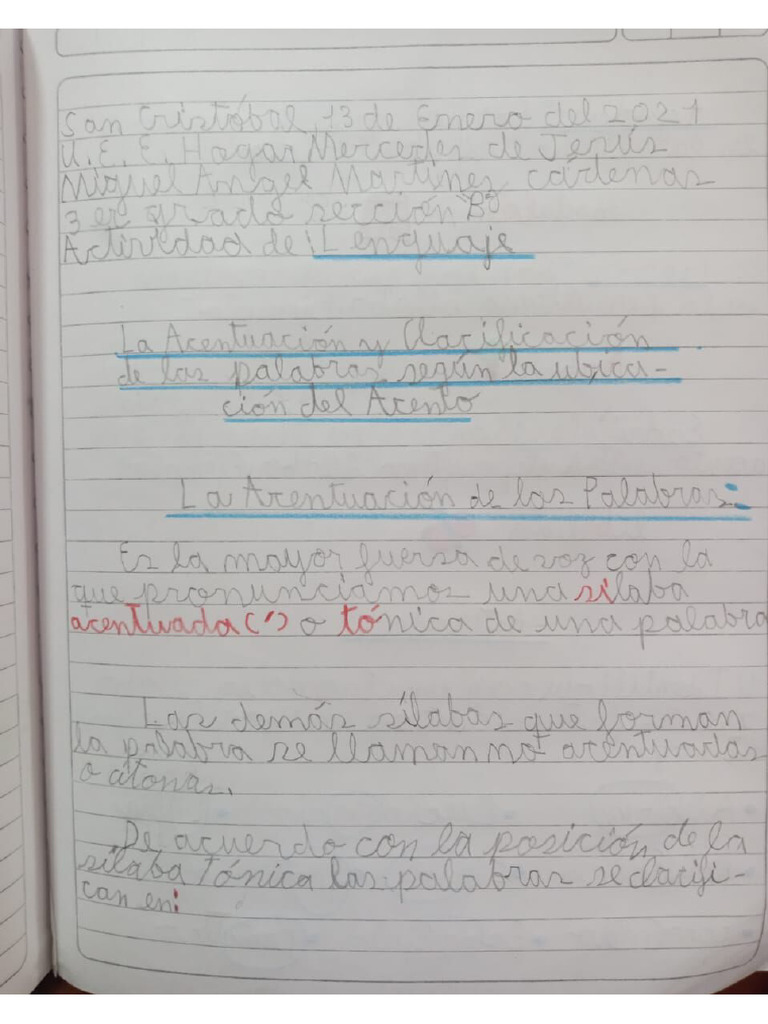 San Cristóbal, 13 de Enero del 2021
U.E.E. Hogar Mercedes de Jesús
Miguel Angel Martines cárdenas
3 er grado sección "B"
Actividad de: Lenguaje
La Acentuación y Clacificación
de las palabras según la ubica-
ción del Acento
La Acentuación de las Palabras:
Es la mayor fuersa de voz con la
que pronunciamos una silaba
acentuada (') o tónica de una palabra
Las demás sílabas que forman
la palabra se llaman no acentuadas
o átonas.
De acuerdo con la posición de la
sílaba tónica las palabras se clacifi-
can en: